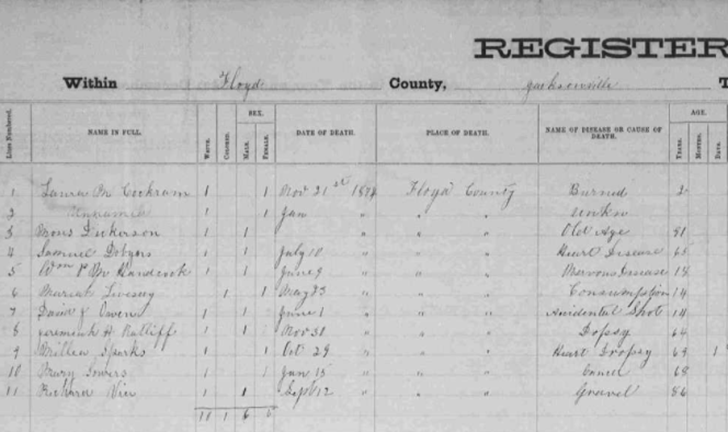 REGISTER
Within Floyd County, Jacksonville T
Lines Numbered. NAME IN FULL. WHITE. COLORED. SEX. MALE. FEMALE. DATE OF DEATH. PLACE OF DEATH. NAME OF DISEASE OR CAUSE OF DEATH. AGE. YEARS. MONTHS. DAYS.
1 Laura M Cockram 1 1 Nov 21st 1874 Floyd County Burned 2
2 Unnamed 1 1 Jan " " " Unknow
3 Mons Dickerson 1 1 " " " Old Age 81
4 Samuel Dobyns 1 1 July 10 " " " Heart Disease 65
5 Wm P Mc Handcook 1 1 June 9 " " " Nervous Disease 18
6 Mariah Livesay 1 1 May 23 " " " Consumption 14
7 David J Owens 1 1 June 1 " " " Accidental Shot 14
8 Jeremiah H Ratliff 1 1 Nov 31 " " " Dopsy 64
9 Millea Sparks 1 1 Oct 29 " " " Heart Dropsy 69 1
10 Mary Sowers 1 1 Jan 15 " " " Cancer 68
11 Richard Vier 1 1 Sept 12 " " " Gravel 86
10 1 6